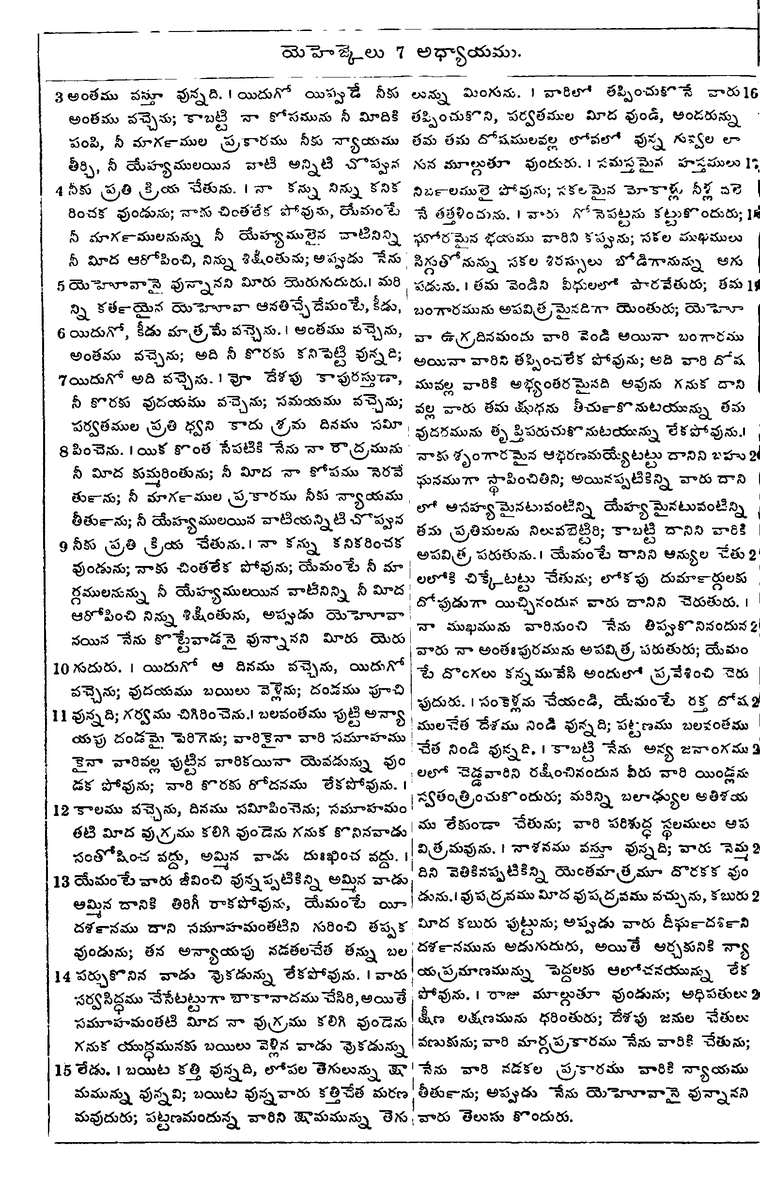 యెహెజ్కేలు 7 అధ్యాయము.
3 అంతము వస్తూ వున్నది. । యిదుగో యిప్పుడే నీకు
అంతము వచ్చెను; కాబట్టి నా కోపమును నీ మీదికి
పంపి, నీ మార్గముల ప్రకారము నీకు న్యాయము
తీర్చి, నీ యేహ్యములయిన వాటి అన్నిటి చొప్పున
4 నీకు ప్రతి క్రియ చేతును. । నా కన్ను నిన్ను కనిక
రించక వుండును; నాకు చింతలేక పోవును, యేమంటే
నీ మార్గములనున్ను నీ యేహ్యములైన వాటినిన్ని
నీ మీద ఆరోపించి, నిన్ను శిక్షింతును; అప్పుడు నేను
5 యెహొవానై వున్నానని మీరు యెరుగుదురు. । మరి
న్ని కర్తయైన యెహొవా ఆనతిచ్చేదేమంటే, కీడు,
6 యిదుగో, కీడు మాత్రమే వచ్చెను. । అంతము వచ్చెను,
అంతము వచ్చెను; అది నీ కొరకు కనిపెట్టి వున్నది;
7 యిదుగో అది వచ్చెను. । వోా దేశపు కాపురస్తుడా,
నీ కొరకు వుదయము వచ్చెను; సమయము వచ్చెను;
పర్వతముల ప్రతి ధ్వని కాదు శ్రమ దినము సమీ
8 పించెను. । యిక కొంత సేపటికి నేను నా రౌద్రమును
నీ మీద కుమ్మరింతును; నీ మీద నా కోపము నెరవే
ర్తును; నీ మార్గముల ప్రకారము నీకు న్యాయము
తీర్తును; నీ యేహ్యములయిన వాటియన్నిటి చొప్పున
9 నీకు ప్రతి క్రియ చేతును. । నా కన్ను కనికరించక
వుండును; నాకు చింతలేక పోవును; యేమంటే నీ మా
ర్గములనున్ను నీ యేహ్యములయిన వాటినిన్ని నీ మీద
ఆరోపించి నిన్ను శిక్షింతును, అప్పుడు యెహొవా
నయిన నేను కొట్టేవాడనై వున్నానని మీరు యెరు
10 గుదురు. । యిదుగో ఆ దినము వచ్చెను, యిదుగో
వచ్చెను; వుదయము బయిలు వెళ్లెను; దండము పూచి
11 వున్నది; గర్వము చిగిరించెను. । బలవంతము పుట్టి అన్యా
యపు దండమై పెరిగెను; వారికైనా వారి సమూహము
కైనా వారివల్ల పుట్టిన వారికయినా యెవడున్ను వుం
డక పోవును; వారి కొరకు రోదనము లేకపోవును. ।
12 కాలము వచ్చెను, దినము సమీపించెను; సమూహమం
తటి మీద వుగ్రము కలిగి వుండెను గనుక కొనినవాడు
సంతోషించ వద్దు, అమ్మిన వాడు దుఃఖించ వద్దు. ।
13 యేమంటే వారు జీవించి వున్నప్పటికిన్ని అమ్మిన వాడు
అమ్మిన దానికి తిరిగీ రాకపోవును, యేమంటే యీ
దర్శనము దాని సమూహమంతటిని గురించి తప్పక
వుండును; తన అన్యాయపు నడతలచేత తన్ను బల
14 పర్చుకొనిన వాడు వొకడున్ను లేకపోవును. । వారు
సర్వసిద్ధము చేసేటట్టుగా బాకానాదము చేసిరి, అయితే
సమూహమంతటి మీద నా వుగ్రము కలిగి వుండెను
గనుక యుద్ధమునకు బయిలు వెళ్లిన వాడు వొకడున్ను
15 లేడు. । బయిట కత్తి వున్నది, లోపల తెగులున్ను క్షా
మమున్ను వున్నవి; బయిట వున్నవారు కత్తిచేత మరణ
మవుదురు; పట్టణమందున్న వారిని క్షామమున్ను తెగు
లున్ను మింగును. । వారిలో తప్పించుకొనే వారు 16
తప్పించుకొని, పర్వతముల మీద వుండి, అందరున్ను
తమ తమ దోషములవల్ల లోవలో వున్న గువ్వల లా
గున మూల్గుతూ వుందురు. । సమస్తమైన హస్తములు 1
నిర్బలములై పోవును; సకలమైన మోకాళ్లు నీళ్ల వలె
నే తత్తళించును. । వారు గోనెపట్టను కట్టుకొందురు; 1
ఘోరమైన భయము వారిని కప్పును; సకల ముఖములు
సిగ్గుతోనున్ను సకల శిరస్సులు బోడిగానున్ను అగు
పడును. । తమ వెండిని వీధులలో పారవేతురు; తమ 1
బంగారమును అపవిత్రమైనదిగా యెంతురు; యెహొ
వా ఉగ్రదినమందు వారి వెండి అయినా బంగారము
అయినా వారిని తప్పించలేక పోవును; అది వారి దోష
మువల్ల వారికి అభ్యంతరమైనది అవును గనుక దాని
వల్ల వారు తమ క్షుధను తీర్చుకొనుటయున్ను తమ
వుదరమును తృప్తిపరుచుకొనుటయున్ను లేకపోవును. ।
నాకు శృంగారమైన ఆభరణమయ్యేటట్టు దానిని బహు 2
ఘనముగా స్థాపించితిని; అయినప్పటికిన్ని వారు దాని
లో అసహ్యమైనటువంటిన్ని యేహ్యమైనటువంటిన్ని
తమ ప్రతిమలను నిలువబెట్టిరి; కాబట్టి దానిని వారికి
అపవిత్ర పరుతును. । యేమంటే దానిని అన్యుల చేతు 2
లలోకి చిక్కేటట్టు చేతును; లోకపు దుర్మార్గులకు
దోపుడుగా యిచ్చినందున వారు దానిని చెరుతురు. ।
నా ముఖమును వారినుంచి నేను తిప్పుకొనినందున 2
వారు నా అంతఃపురమును అపవిత్ర పరుతురు; యేమం
టే దొంగలు కన్నమువేసి అందులో ప్రవేశించి చెరు
పుదురు. । సంకెళ్లను చేయండి, యేమంటే రక్త దోష 2
ములచేత దేశము నిండి వున్నది; పట్టణము బలవంతము
చేత నిండి వున్నది. । కాబట్టి నేను అన్య జనాంగము 2
లలో చెడ్డవారిని రక్షించినందున వీరు వారి యిండ్లను
స్వతంత్రించుకొందురు; మరిన్ని బలాఢ్యుల అతిశయ
ము లేకుండా చేతును; వారి పరిశుద్ధ స్థలములు అప
విత్రమవును. । నాశనము వస్తూ వున్నది; వారు నెమ్మ 2
దిని వెతికినప్పటికిన్ని యెంతమాత్రమూ దొరకక వుం
డును. । వుపద్రవము మీద వుపద్రవము వచ్చును, కబురు 2
మీద కబురు పుట్టును; అప్పుడు వారు దీర్ఘదర్శిని
దర్శనమును అడుగుదురు, అయితే అర్చకునికి న్యా
యప్రమాణమున్ను పెద్దలకు ఆలోచనయున్ను లేక
పోవును. । రాజు మూల్గుతూ వుండును; అధిపతులు 2
క్షీణ లక్షణమును ధరింతురు; దేశపు జనుల చేతులు
వణుకును; వారి మార్గప్రకారము నేను వారికి చేతును;
నేను వారి నడకల ప్రకారము వారికి న్యాయము
తీర్తును; అప్పుడు నేను యెహొవానై వున్నానని
వారు తెలుసు కొందురు.